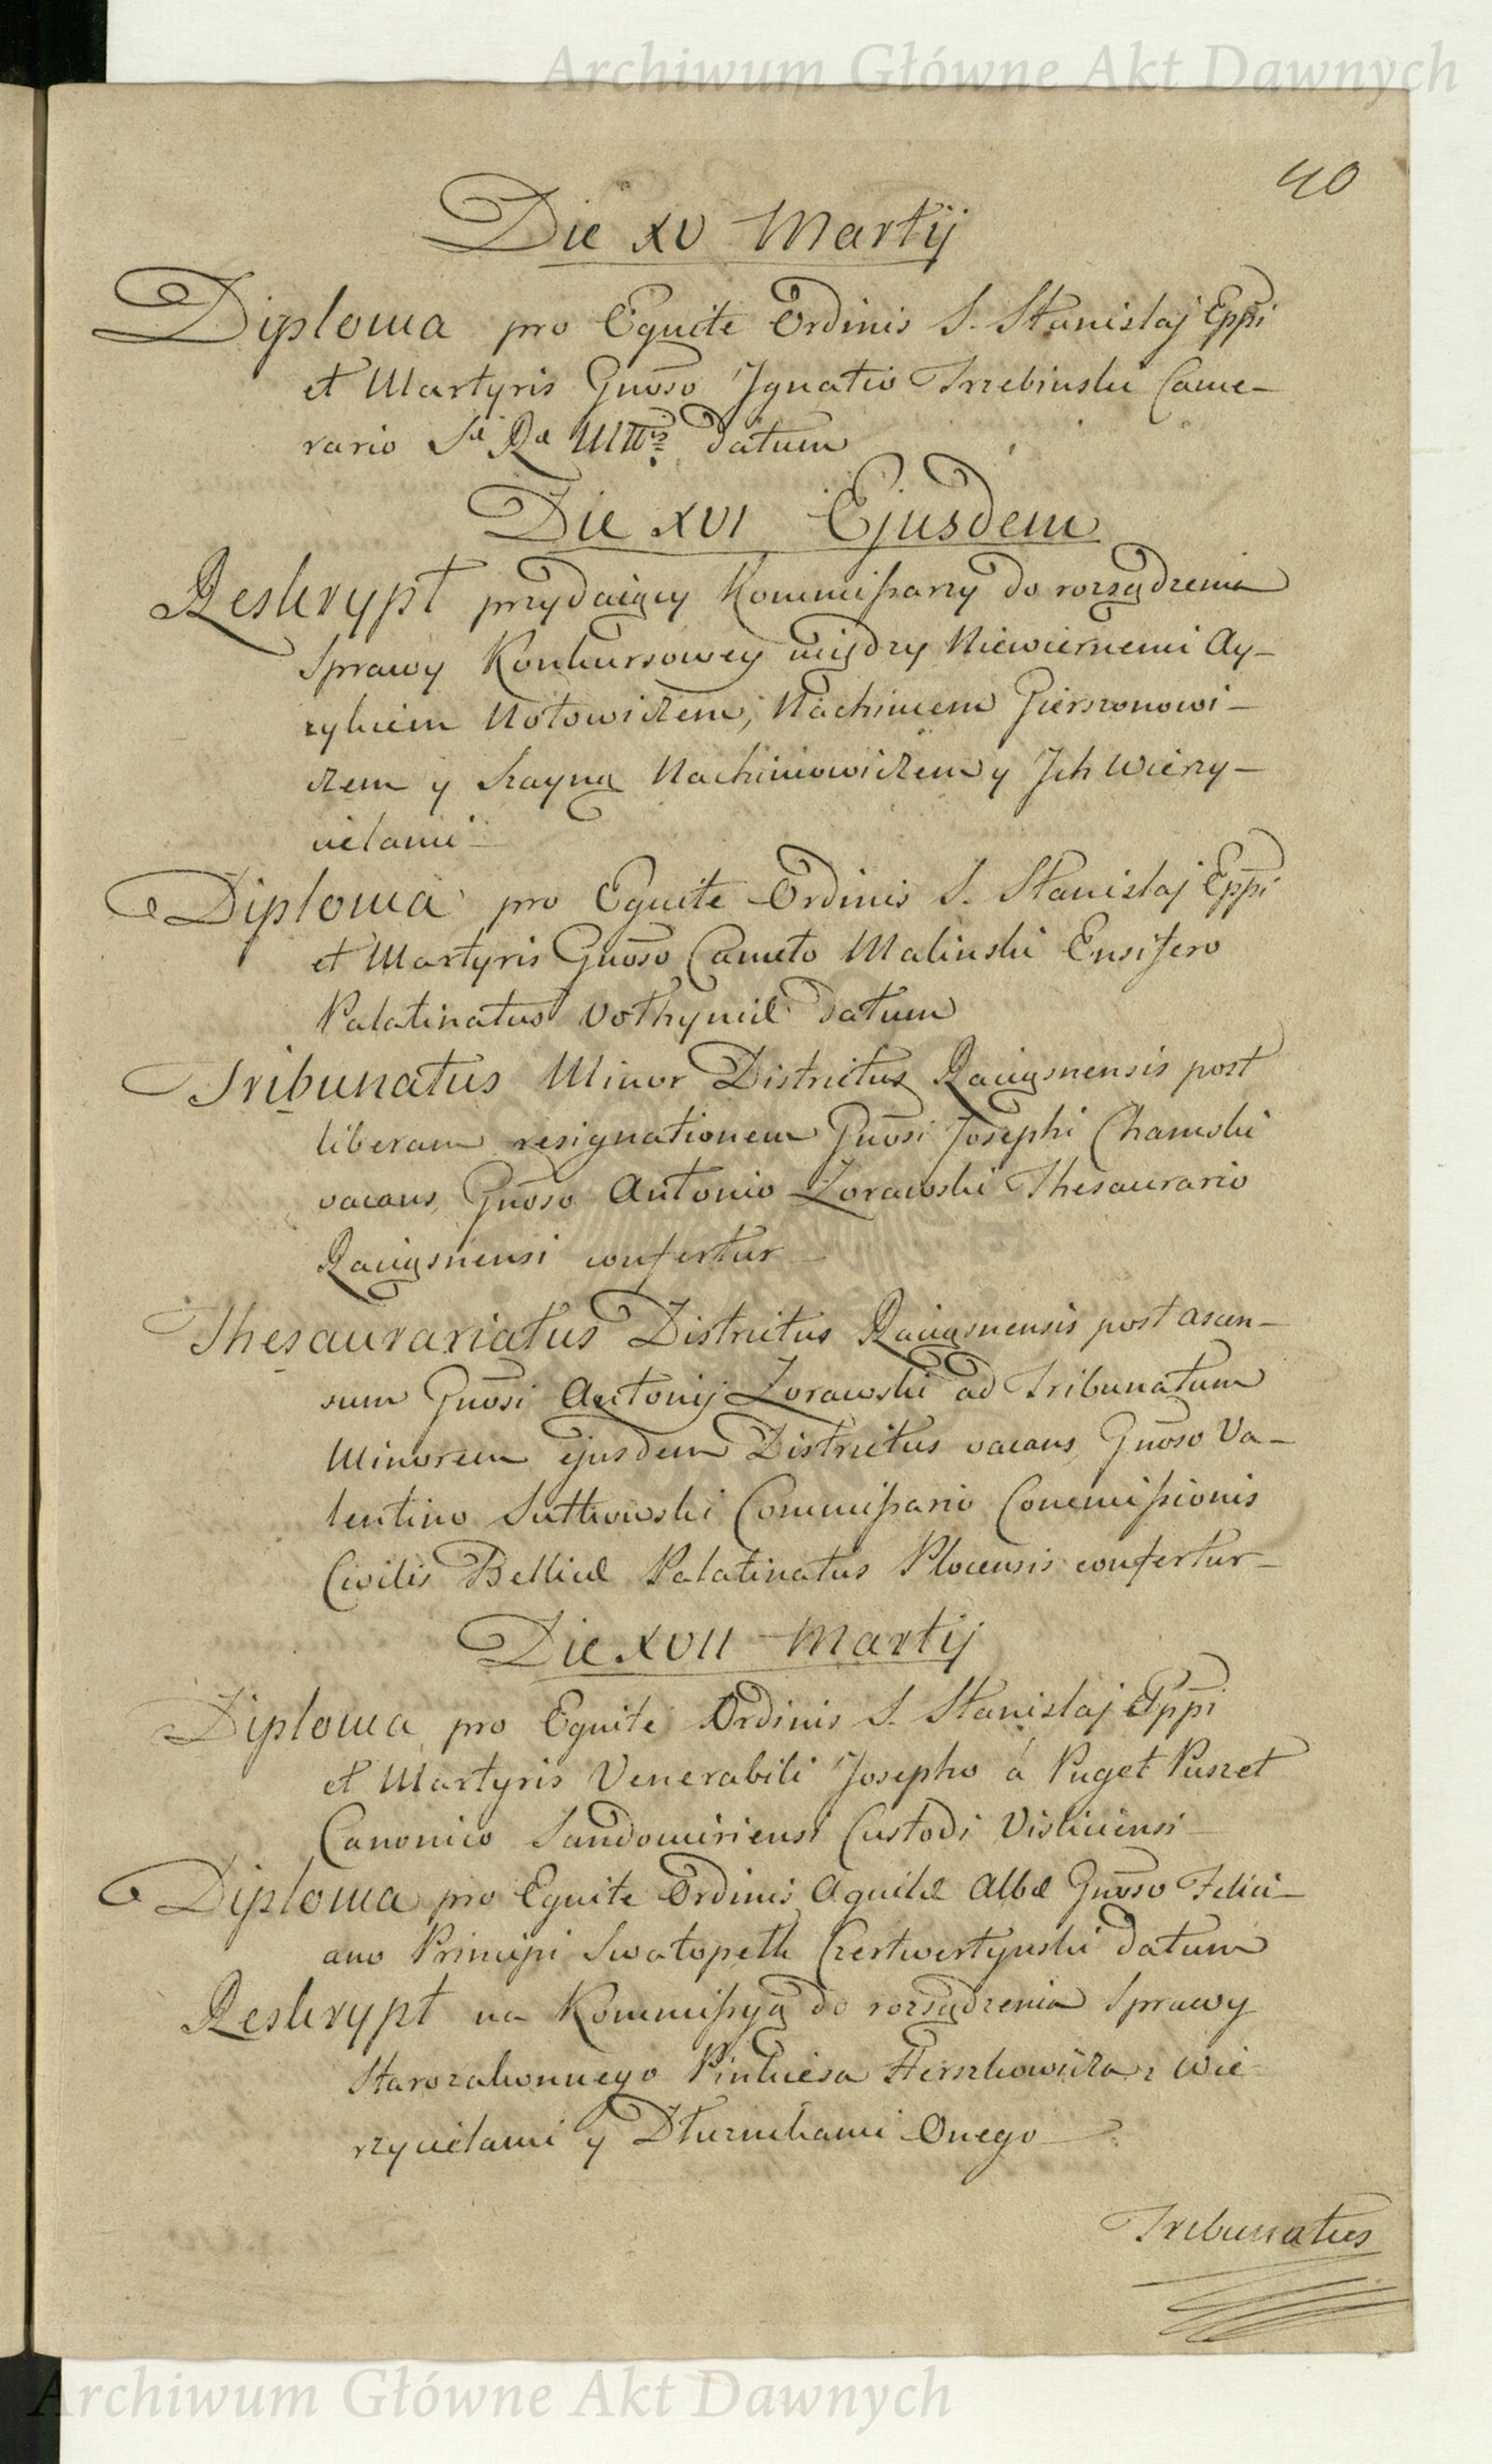 Archiwum Główne Akt Dawnych
40
Die XV Martij
Diploma pro Equite Ordinis S. Stanislaj Eppi
et Martyris Gnoso Ignatio Trzebinski Came-
rario Sæ Ræ Mttis datum
Die XVI Ejusdem
Reskrypt przydaiący Kommißarzy do rozsądzenia
Sprawy Konkursowey między Niewiernemi Ay-
zykiem Notowiczem, Nachimem Gierszonowi-
czem y Szayną Nachimowiczem y Ich Wierzy-
cielami
Diploma pro Equite Ordinis S. Stanislaj Eppi
et Martyris Gnoso Canuto Malinski Ensifero
Palatinatus Volhyniæ datum
Tribunatus Minor Districtus Raciąsnensis post
liberam resignationem Gnosi Josephi Chamski
vacans, Gnoso Antonio Zorawski Thesaurario
Raciąsnensi confertur
Thesaurariatus Districtus Raciąsnensis post ascen-
sum Gnosi Antonij Zorawski ad Tribunatum
Minorem ejusdem Districtus vacans, Gnoso Va-
lentino Sutkowski Commißario Commißionis
Civilis Bellicæ Palatinatus Plocensis confertur
Die XVII Martij
Diploma pro Equite Ordinis S. Stanislaj Eppi
et Martyris Venerabili Josepho á Puget Puszet
Canonico Sandomiriensi Custodi Visliciensi
Diploma pro Equite Ordinis Aquilæ Albæ Gnoso Felici-
ano Principi Swatopełk Czertwertynski datum
Reskrypt na Kommißyą do rozsądzenia Sprawy
Starozakonnego Pinkiesa Herszkowicza z Wie-
rzycielami y Dłużnikami Onego
Tribunatus
Archiwum Główne Akt Dawnych